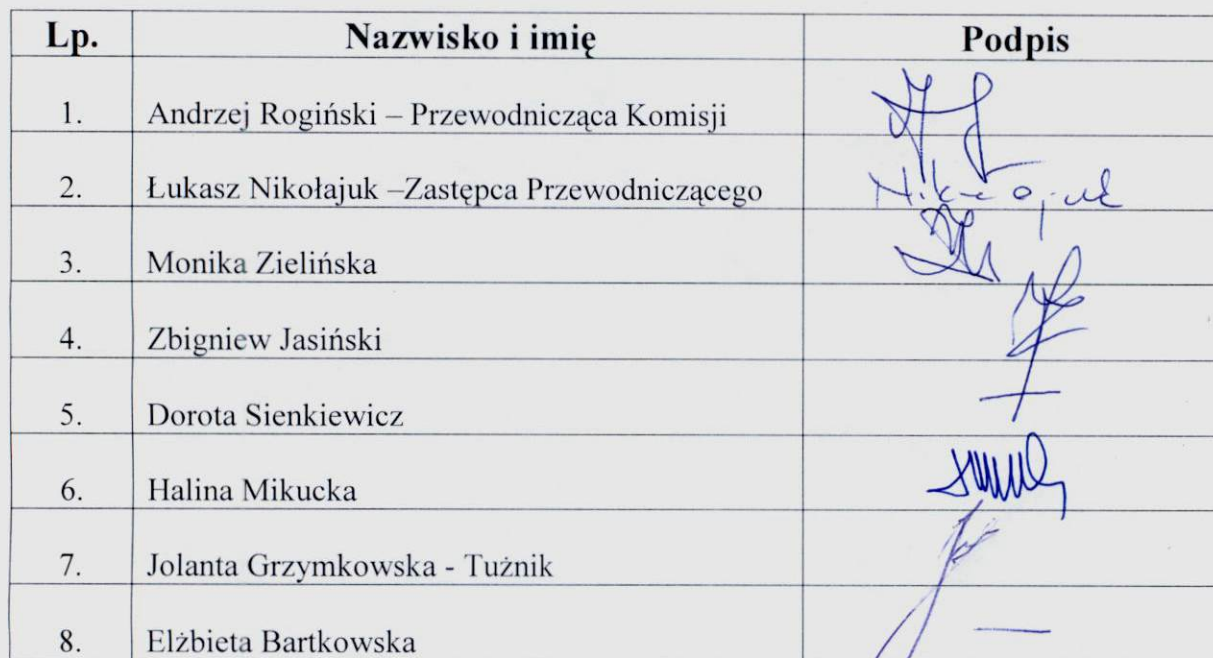 Lp. Nazwisko i imię Podpis
1. Andrzej Rogiński – Przewodnicząca Komisji
2. Łukasz Nikołajuk –Zastępca Przewodniczącego
3. Monika Zielińska
4. Zbigniew Jasiński
5. Dorota Sienkiewicz
6. Halina Mikucka
7. Jolanta Grzymkowska - Tużnik
8. Elżbieta Bartkowska